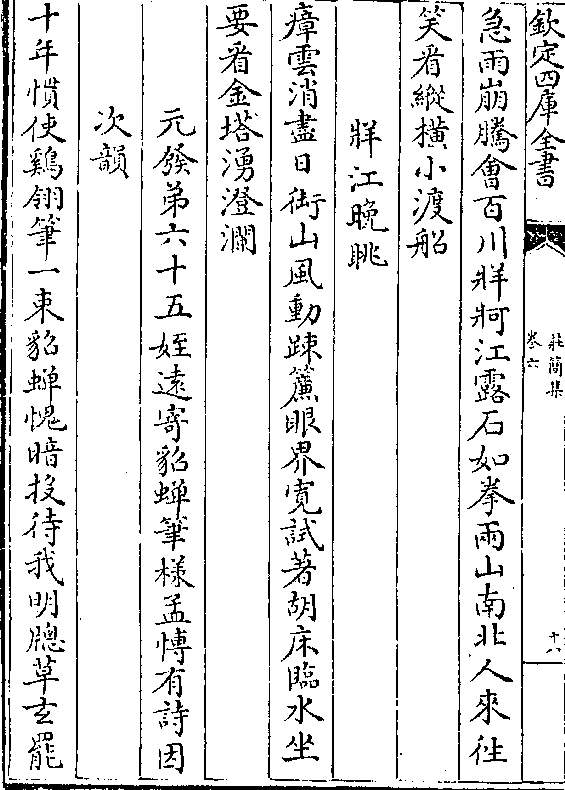 欽定四庫全書
莊簡集
卷六
十六
急雨崩騰會百川牂牁江露石如拳兩山南北人來往
笑看縱横小渡船
牂江晚眺
瘴雲消盡日銜山風動踈簾眼界寛試著胡床臨水坐
要看金塔湧澄瀾
元發弟六十五姪遠寄貂蟬筆様孟博有詩因
次韻
十年慣使鷄翎筆一束貂蟬愧暗投待我明牕草玄罷